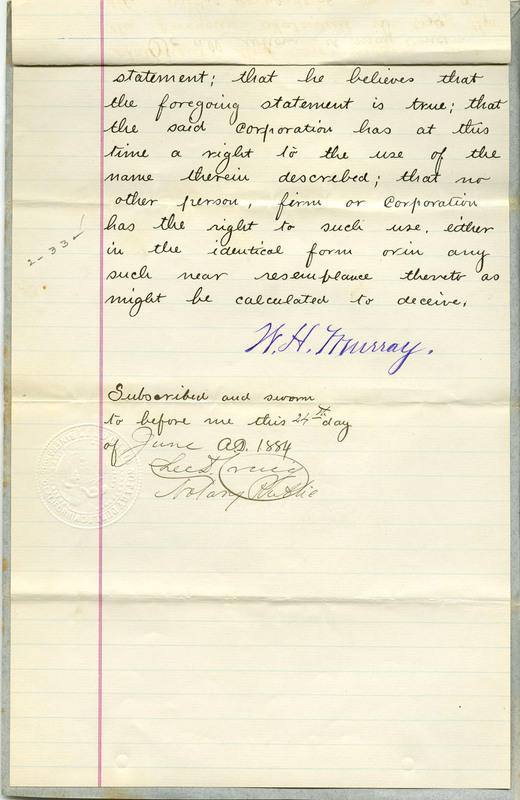 statement; that he believes that
the foregoing statement is true; that
the said corporation has at this
time a right to the use of the
name therein descrebed; that no
other person, firm or corporation
has the right to such use, either
in the identical form or in any
such near resemplance thereto as
might be calculated to deceive.
2-33-1
W. H. Murray.
Subscribed and sworn
to before me this 24th day
of June A.D. 1884
Notary Public